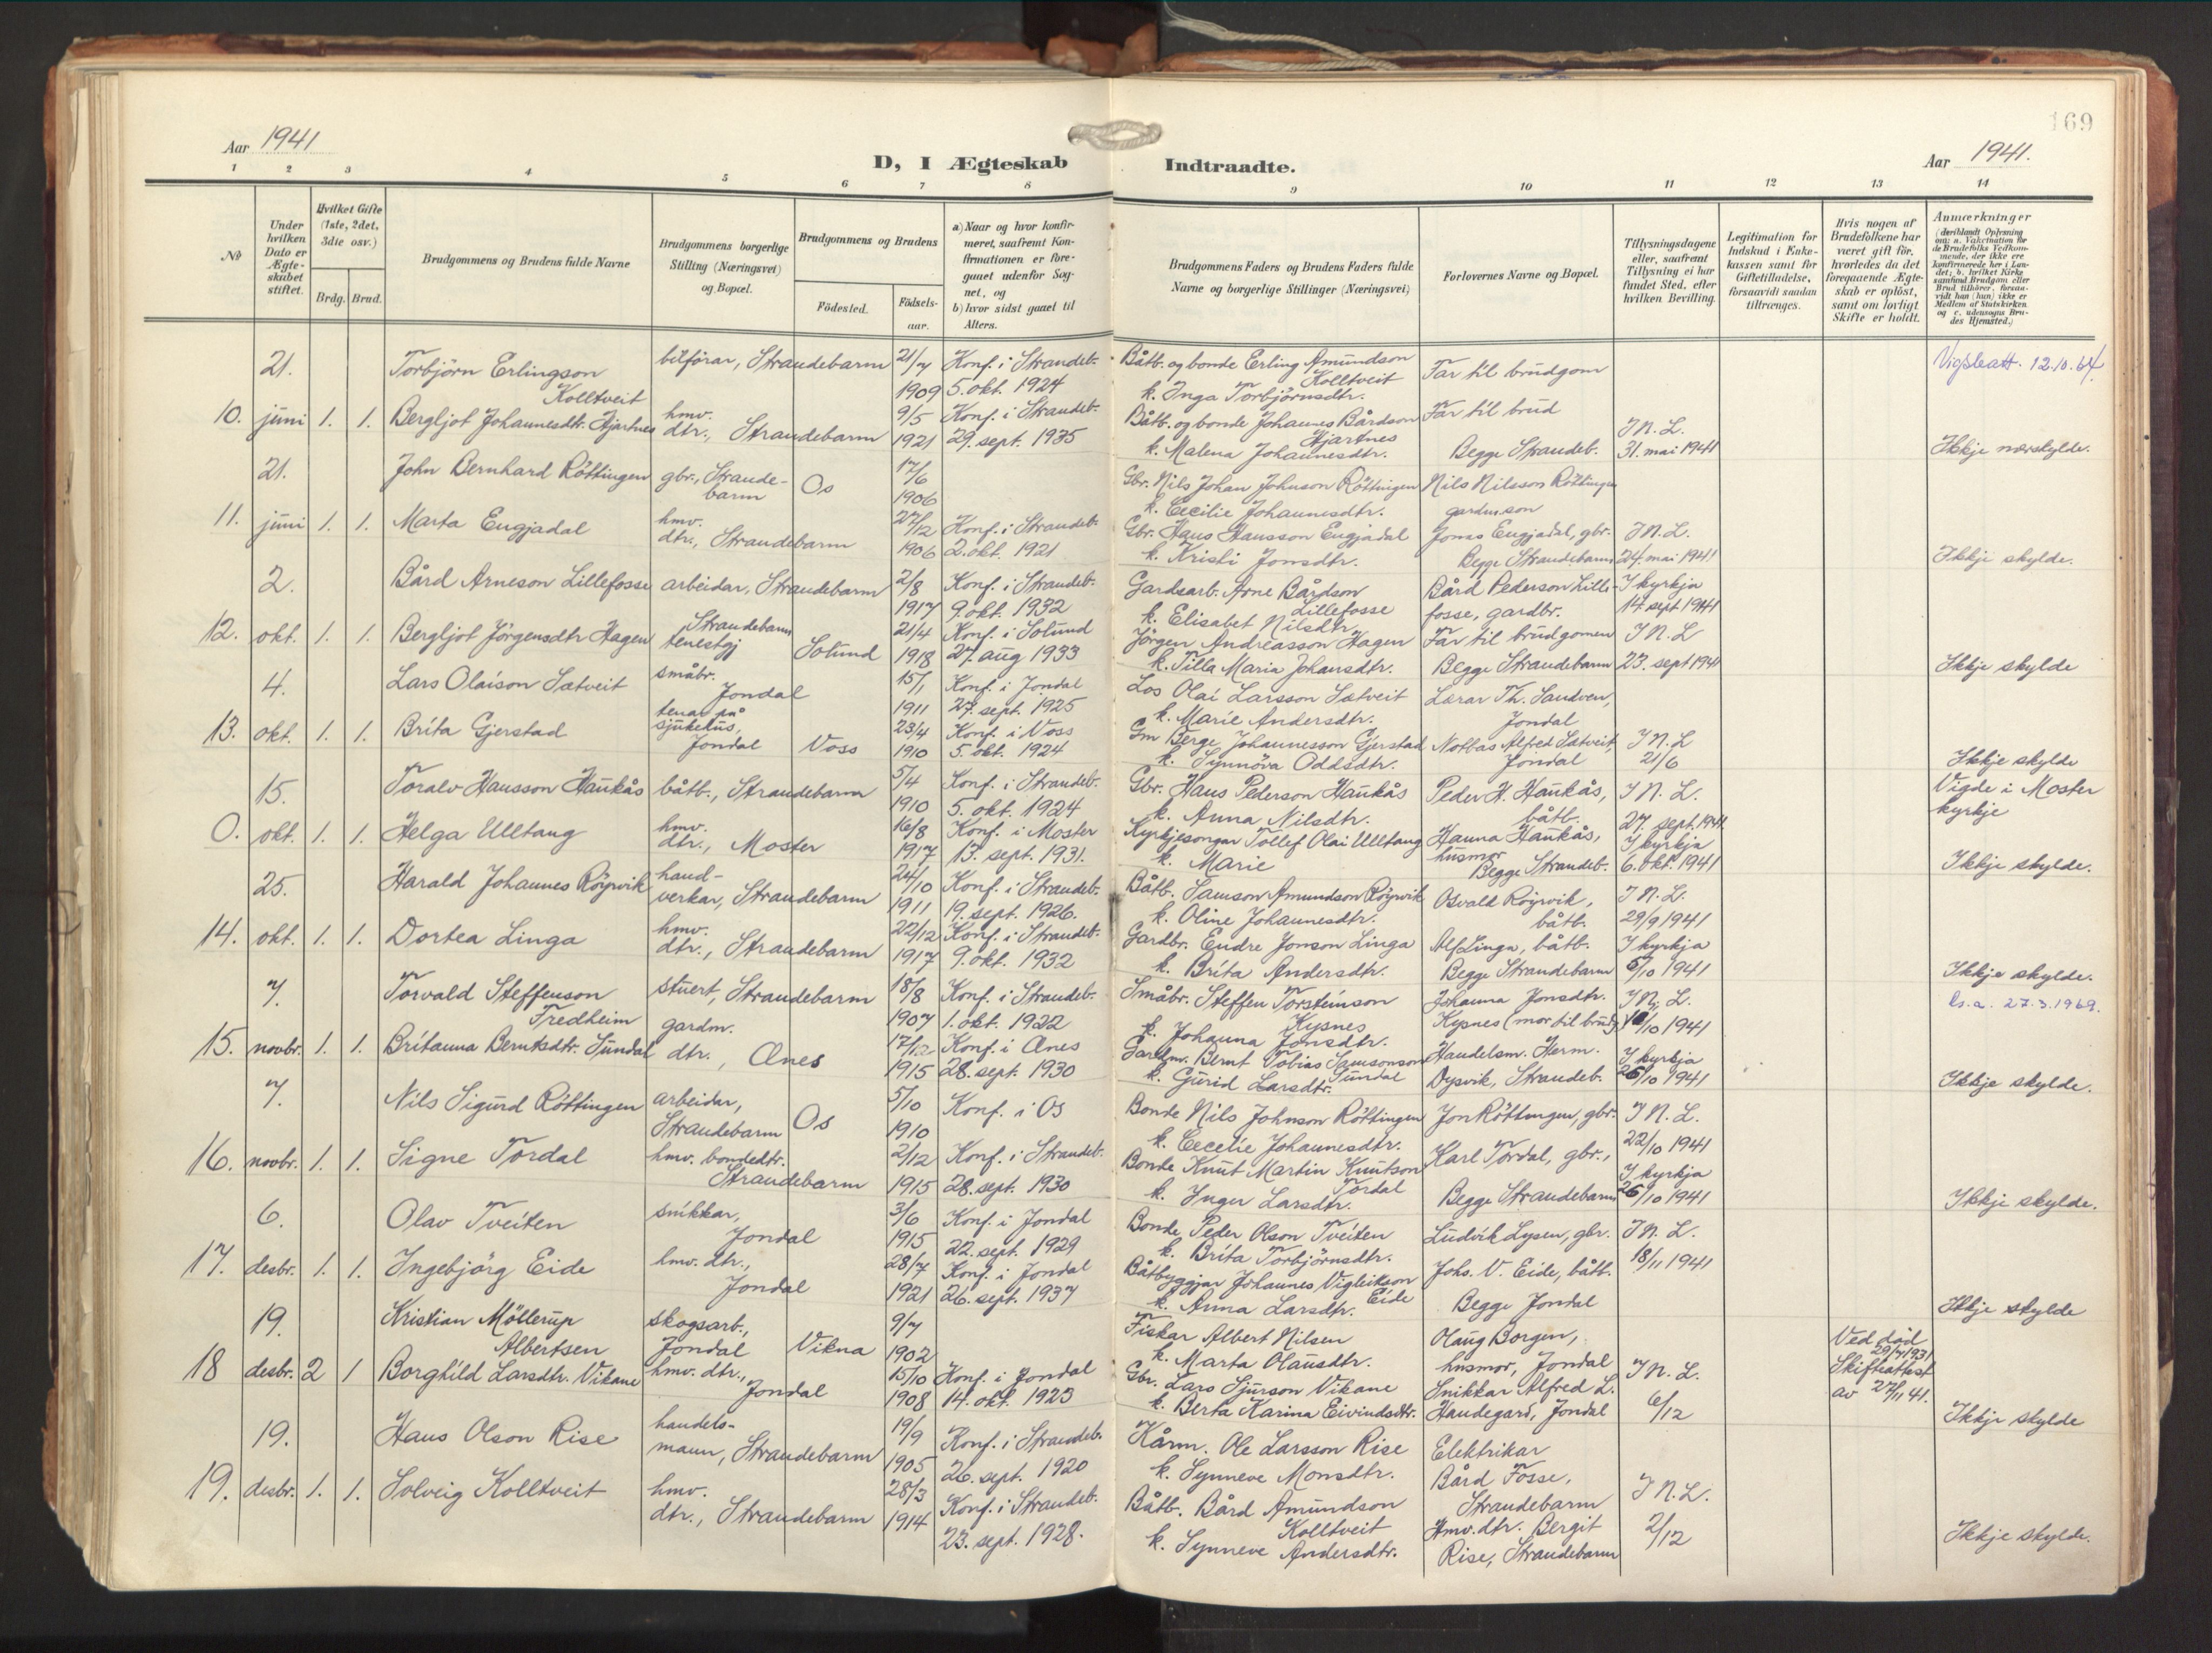 169
Aar 1941
D, I Ægteskab Indtraadte.
Aar 1941.
1 2 3 4 5 6 7 8 9 10 11 12 13 14
No
Under hvilken Dato er Ægteskabet stiftet.
Hvilket Gifte (1ste, 2det, 3die osv.)
Brdg. Brud.
Brudgommens og Brudens fulde Navne
Brudgommens borgerlige Stilling (Næringsvei) og Bopæl.
Brudgommens og Brudens
Födested.
Födselsaar.
a) Naar og hvor konfirmeret, saafremt Konfirmationen er foregaaet udenfor Sognet, og
b) hvor sidst gaaet til Alters.
Brudgommens Faders og Brudens Faders fulde Navne og borgerlige Stillinger (Næringsvei)
Forlovernes Navne og Bopæl.
Tillysningsdagene eller, saafremt Tillysning ei har fundet Sted, efter hvilken Bevilling.
Legitimation for Indskud i Enkekassen samt for Giftetilladelse, forsaavidt saadan tiltrænges.
Hvis nogen af Brudefolkene har været gift för, hvorledes da det foregaaende Ægteskab er oplöst, samt om lovligt Skifte er holdt.
Anmærkninger
(deriblandt Oplysning om: a. Vakcination for de Brudefolks Vedkommende, der ikke ere konfirmerede her i Landet; b. hvilket Kirkesamfund Brudgom eller Brud tilhörer, forsaavidt han (hun) ikke er Medlem af Statskirken og c. udensogns Brudes Hjemsted.)
21. Torbjörn Erlingson Kolltveit bilförar, Strandebarm 21/7 1909 Konf. i Strandeb. 5. okt. 1924 Båtb. og bonde Erling Amundson Kolltveit k. Inga Torbjörnsdtr. Far til brudgom Vigslatt. 12.10.64.
10. juni 1. 1. Bergljot Johannesdtr. Hjartnes hmv. dtr., Strandebarm 9/5 1921 Konf. i Strandeb. 29. sept. 1935 Båtb. og bonde Johannes Bårdson Hjartnes k. Malena Johannesdtr. Far til brud Begge Strandeb. I N. L. 31. mai 1941 Ikkje nærskylde.
21. John Bernhard Röttingen gbr., Strandebarm Os 17/6 1906 Gbr. Nils Johan Johnson Röttingen k. Cecilie Johannesdtr. Nils Nilsson Röttingen gardm.son
11. juni 1. 1. Marta Engjadal hmv. dtr., Strandebarm 27/12 1906 Konf. i Strandeb. 2. okt. 1921 Gbr. Hans Hansson Engjadal k. Kristi Jonsdtr. Jonas Engjadal, gbr. Begge Strandebarm I N. L. 24. mai 1941 Ikkje skylde.
2. Bård Arneson Lillefosse arbeidar, Strandebarm 2/8 1917 Konf. i Strandeb. 9. okt. 1932 Gardsarb. Arne Bårdson Lillefosse k. Elisabet Nilsdtr. Bård Pederson Lillefosse, gardbr. I kyrkja 14. sept 1941
12. okt. 1. 1. Bergljot Jörgensdtr Hagen Strandebarm tenestgj Solund 21/4 1918 Konf. i Solund 27. aug 1933 Jörgen Andreasson Hagen k. Tilla Maria Johansdtr. Far til brudgomen Begge Strandebarm I N. L 23. sept 1941 Ikkje skylde
4. Lars Olaison Sætveit småbr. Jondal 15/1 1911 Konf. i Jondal 27. sept. 1925 Los Olai Larsson Sætveit k. Marie Andersdtr. Lærar Th. Sandven, Jondal
13. okt. 1. 1. Brita Gjerstad tenar på sjukehus, Jondal Voss 23/4 1910 Konf. i Voss 5. okt. 1924 Gm Berge Johannesson Gjerstad k. Synnöva Oddsdtr. Notbas Alfred Sætveit Jondal I N. L 21/6 Ikkje skylde
15. Toralv Hansson Haukås båtb., Strandebarm 5/4 1910 Konf. i Strandeb. 5. okt. 1924 Gbr. Hans Pederson Haukås k. Anna Nilsdtr. Peder H. Haukås, båtb. I N. L. 27. sept. 1941 Vigde i Moster kyrkje
0. okt. 1. 1. Helga Ulltang hmv. dtr., Moster 16/8 1917 Konf. i Moster 13. sept. 1931. Kyrkjesongar Tollef Olai Ulltang k. Marie Hanna Haukås, husmor Begge Strandeb. I kyrkja 6. okt. 1941 Ikkje skylde.
25. Harald Johannes Röyrvik handverkar, Strandebarm 24/10 1911 Konf. i Strandeb. 19. sept. 1926. Båtb. Samson Amundson Röyrvik k. Oline Johannesdtr. Osvald Röyrvik, båtb. I N. L. 29/9 1941
14. okt. 1. 1. Dortea Linga hmv. dtr., Strandebarm 22/12 1917 Konf. i Strandeb. 9. okt. 1932 Gardbr. Endre Jonson Linga k. Brita Andersdtr. Alf Linga, båtb. Begge Strandebarm I kyrkja 5/10 1941 Ikkje skylde.
7. Torvald Steffenson Fredheim stuert, Strandebarm 18/8 1907 Konf. i Strandeb. 1. okt. 1922 Småbr. Steffen Torsteinson Kysnes k. Johanna Jonsdtr. Johanna Jonsdtr. Kysnes (mor til brudg.) I N. L. /10 1941 Ls.a. 27.3.1969.
15. novbr. 1. 1. Britanna Berntsdtr. Sundal gardm. dtr., Ænes 17/12 1915 Konf. i Ænes 28. sept. 1930 Gardm. Bernt Tobias Samsonson Sundal k. Gurid Larsdtr. Handelsm. Herm. Dysvik, Strandeb. I kyrkja 26/10 1941 Ikkje skylde.
7. Nils Sigurd Röttingen arbeidar, Strandebarm Os 5/10 1910 Konf. i Os Bonde Nils Johnson Röttingen k. Cecelie Johannesdtr. Jon Röttingen, gbr. I N. L. 22/10 1941
16. novbr. 1. 1. Signe Tordal hmv. bondedtr. Strandebarm 2/12 1915 Konf. i Strandeb. 28. sept. 1930 Bonde Knut Martin Knutson Tordal k. Inger Larsdtr. Karl Tordal, gbr., Begge Strandebarm I kyrkja 26/10 1941 Ikkje skylde.
6. Olav Tveiten snikkar, Jondal 3/6 1915 Konf. i Jondal 22. sept. 1929 Bonde Peder Olson Tveiten k. Brita Torbjörnsdtr. Ludvik Lysen, gbr. I N. L. 18/11 1941
17. desbr. 1. 1. Ingebjörg Eide hmv. dtr., Jondal 28/7 1921 Konf. i Jondal 26. sept. 1937 Båtbyggjar Johannes Vigleikson Eide k. Anna Larsdtr. Johs. V. Eide, båtb. Begge Jondal Ikkje skylde
19. Kristian Möllerup Albertsen skogsarb., Jondal Vikna 9/7 1902 Fiskar Albert Nilsen k. Marta Olausdtr. Olaug Borgen, husmor, Jondal Ved död 29/7 1931 Skifteattest av 27/11 41.
18 desbr. 2 1 Borghild Larsdtr. Vikane hmv. dtr., Jondal 15/10 1908 Konf. i Jondal 14. okt. 1923 Gbr. Lars Sjurson Vikane k. Berta Karina Eivindsdtr. Snikkar Alfred L. Handegard, Jondal I N. L. 6/12 Ikkje skylde
19. Hans Olson Rise handelsmann, Strandebarm 19/9 1905 Konf. i Strandeb. 26. sept. 1920 Kårm. Ole Larsson Rise k. Synneve Monsdtr. Elektrikar Bård Fosse, Strandebarm
19. desbr. 1. 1. Solveig Kolltveit hmv. dtr., Strandebarm 28/3 1914 Konf. i Strandeb. 23. sept. 1928. Båtb. Bård Amundson Kolltveit k. Synneve Andersdtr. Hmv. dtr. Bergit Rise, Strandebarm I N. L. 2/12 Ikkje skylde.